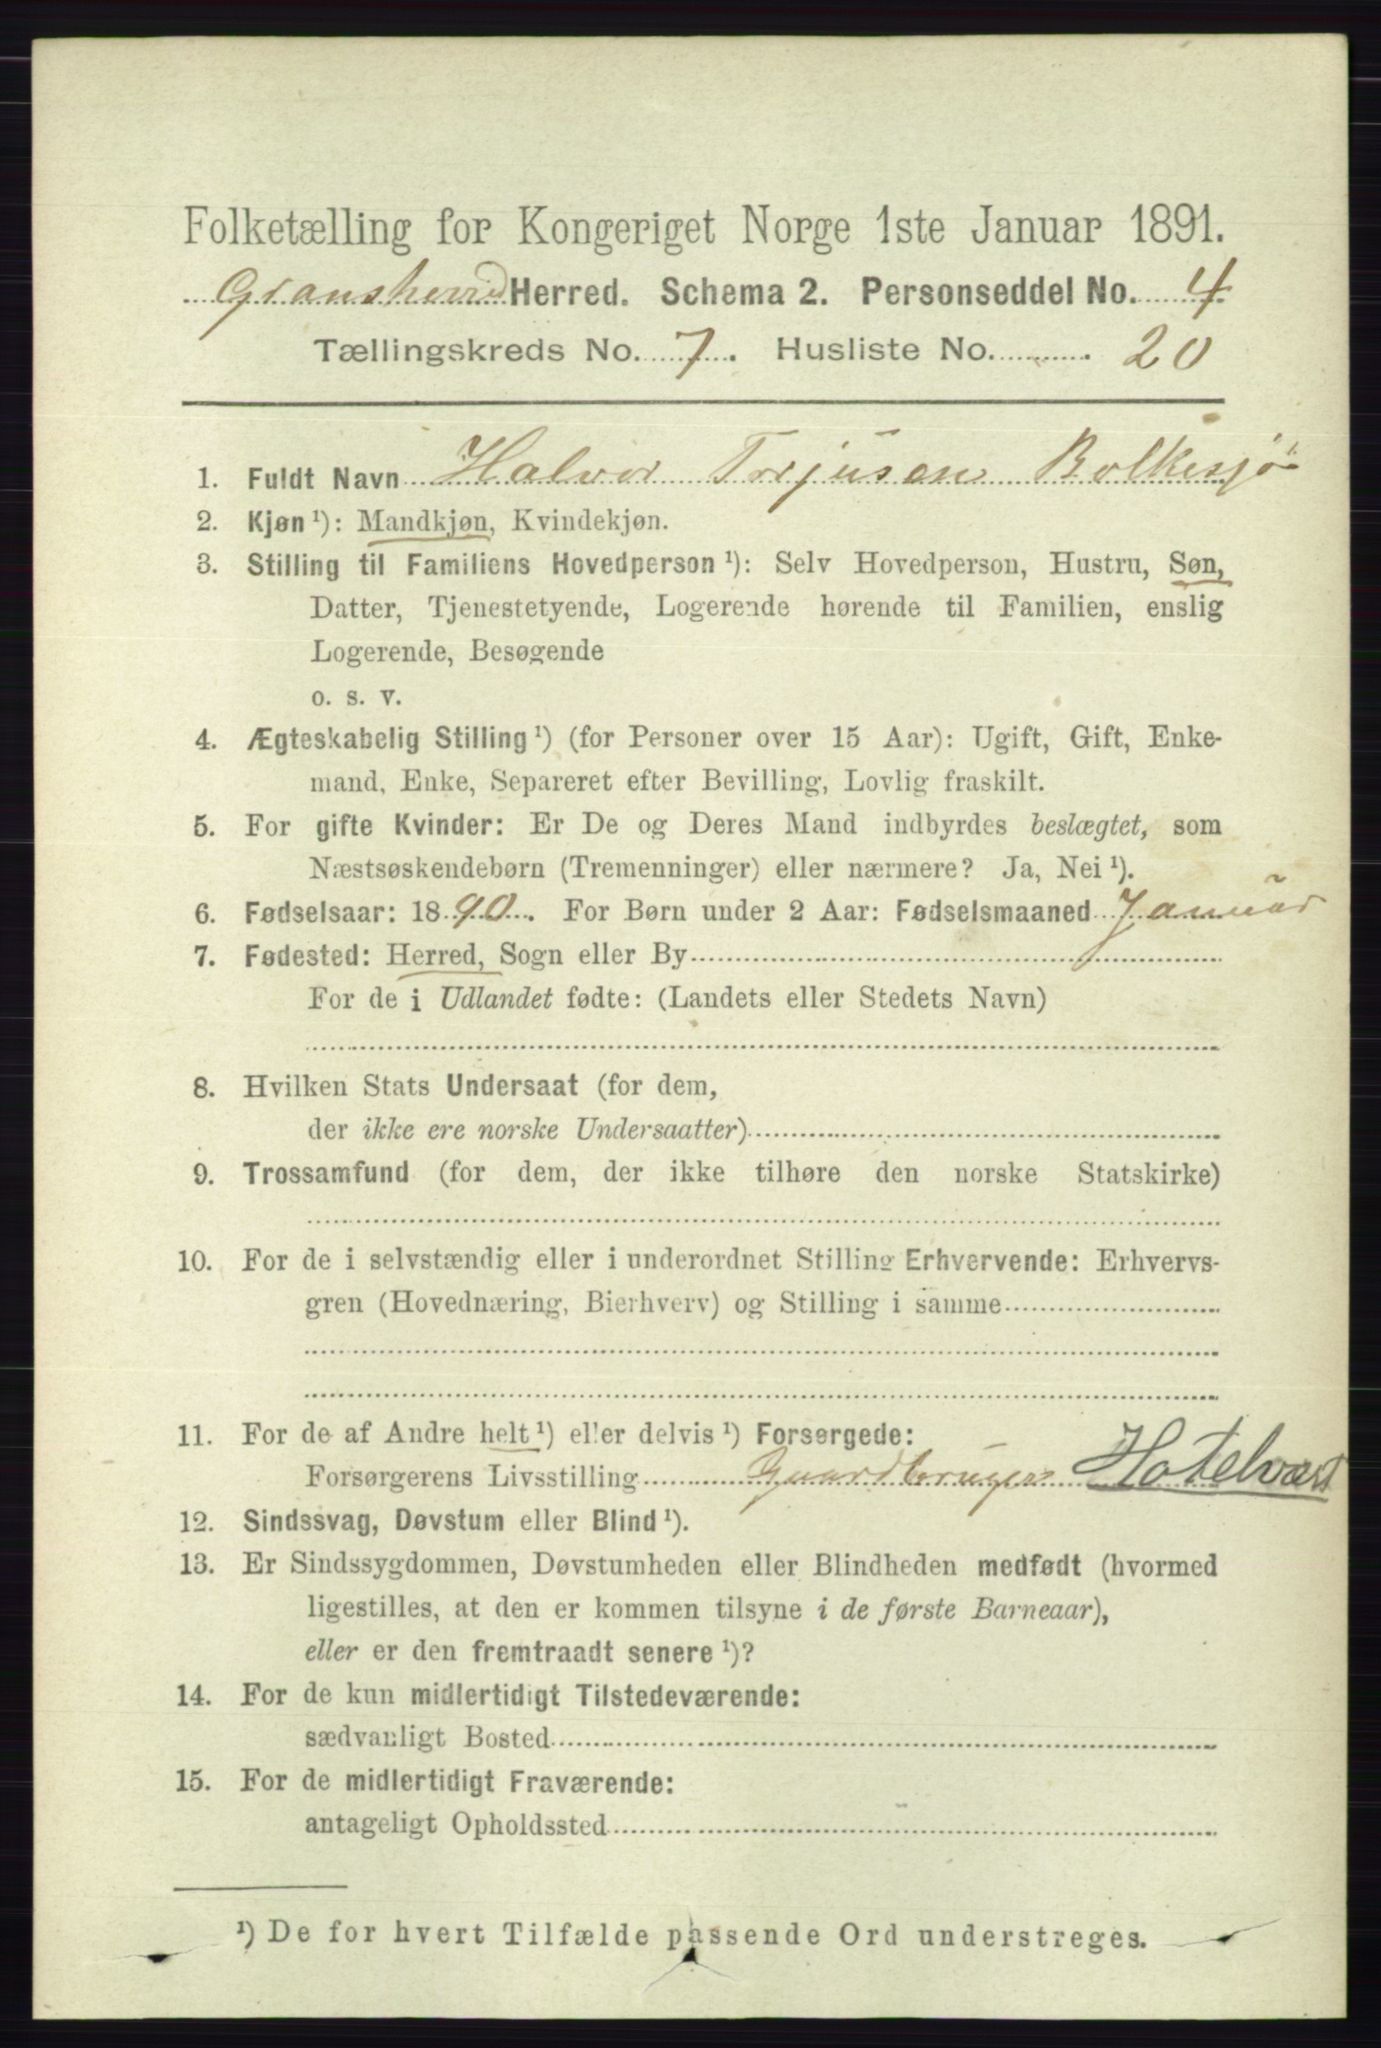 Folketælling for Kongeriget Norge 1ste Januar 1891.
Gransherred Herred. Schema 2. Personseddel No. 4
Tællingskreds No. 7. Husliste No. 20
1. Fuldt Navn Halvor Terjusen Bolkesjø
2. Kjøn ¹): Mandkjøn, Kvindekjøn.
3. Stilling til Familiens Hovedperson ¹): Selv Hovedperson, Hustru, Søn,
Datter, Tjenestetyende, Logerende hørende til Familien, enslig
Logerende, Besøgende
o. s. v.
4. Ægteskabelig Stilling ¹) (for Personer over 15 Aar): Ugift, Gift, Enke-
mand, Enke, Separeret efter Bevilling, Lovlig fraskilt.
5. For gifte Kvinder: Er De og Deres Mand indbyrdes beslægtet, som
Næstsøskendebørn (Tremenninger) eller nærmere? Ja, Nei ¹).
6. Fødselsaar: 1890. For Børn under 2 Aar: Fødselsmaaned Januar
7. Fødested: Herred, Sogn eller By
For de i Udlandet fødte: (Landets eller Stedets Navn)
8. Hvilken Stats Undersaat (for dem,
der ikke ere norske Undersaatter)
9. Trossamfund (for dem, der ikke tilhøre den norske Statskirke)
10. For de i selvstændig eller i underordnet Stilling Erhvervende: Erhvervs-
gren (Hovednæring, Bierhverv) og Stilling i samme
11. For de af Andre helt ¹) eller delvis ¹) Forsørgede:
Forsørgerens Livsstilling Gaardbruger Hotelvært
12. Sindssvag, Døvstum eller Blind ¹).
13. Er Sindssygdommen, Døvstumheden eller Blindheden medfødt (hvormed
ligestilles, at den er kommen tilsyne i de første Barneaar),
eller er den fremtraadt senere ¹)?
14. For de kun midlertidigt Tilstedeværende:
sædvanligt Bosted
15. For de midlertidigt Fraværende:
antageligt Opholdssted
¹) De for hvert Tilfælde passende Ord understreges.